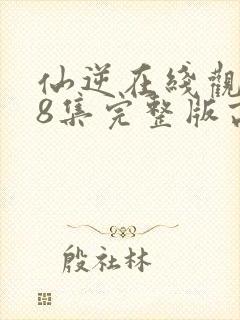 仙逆在綫觀
8集完整版
殷社林